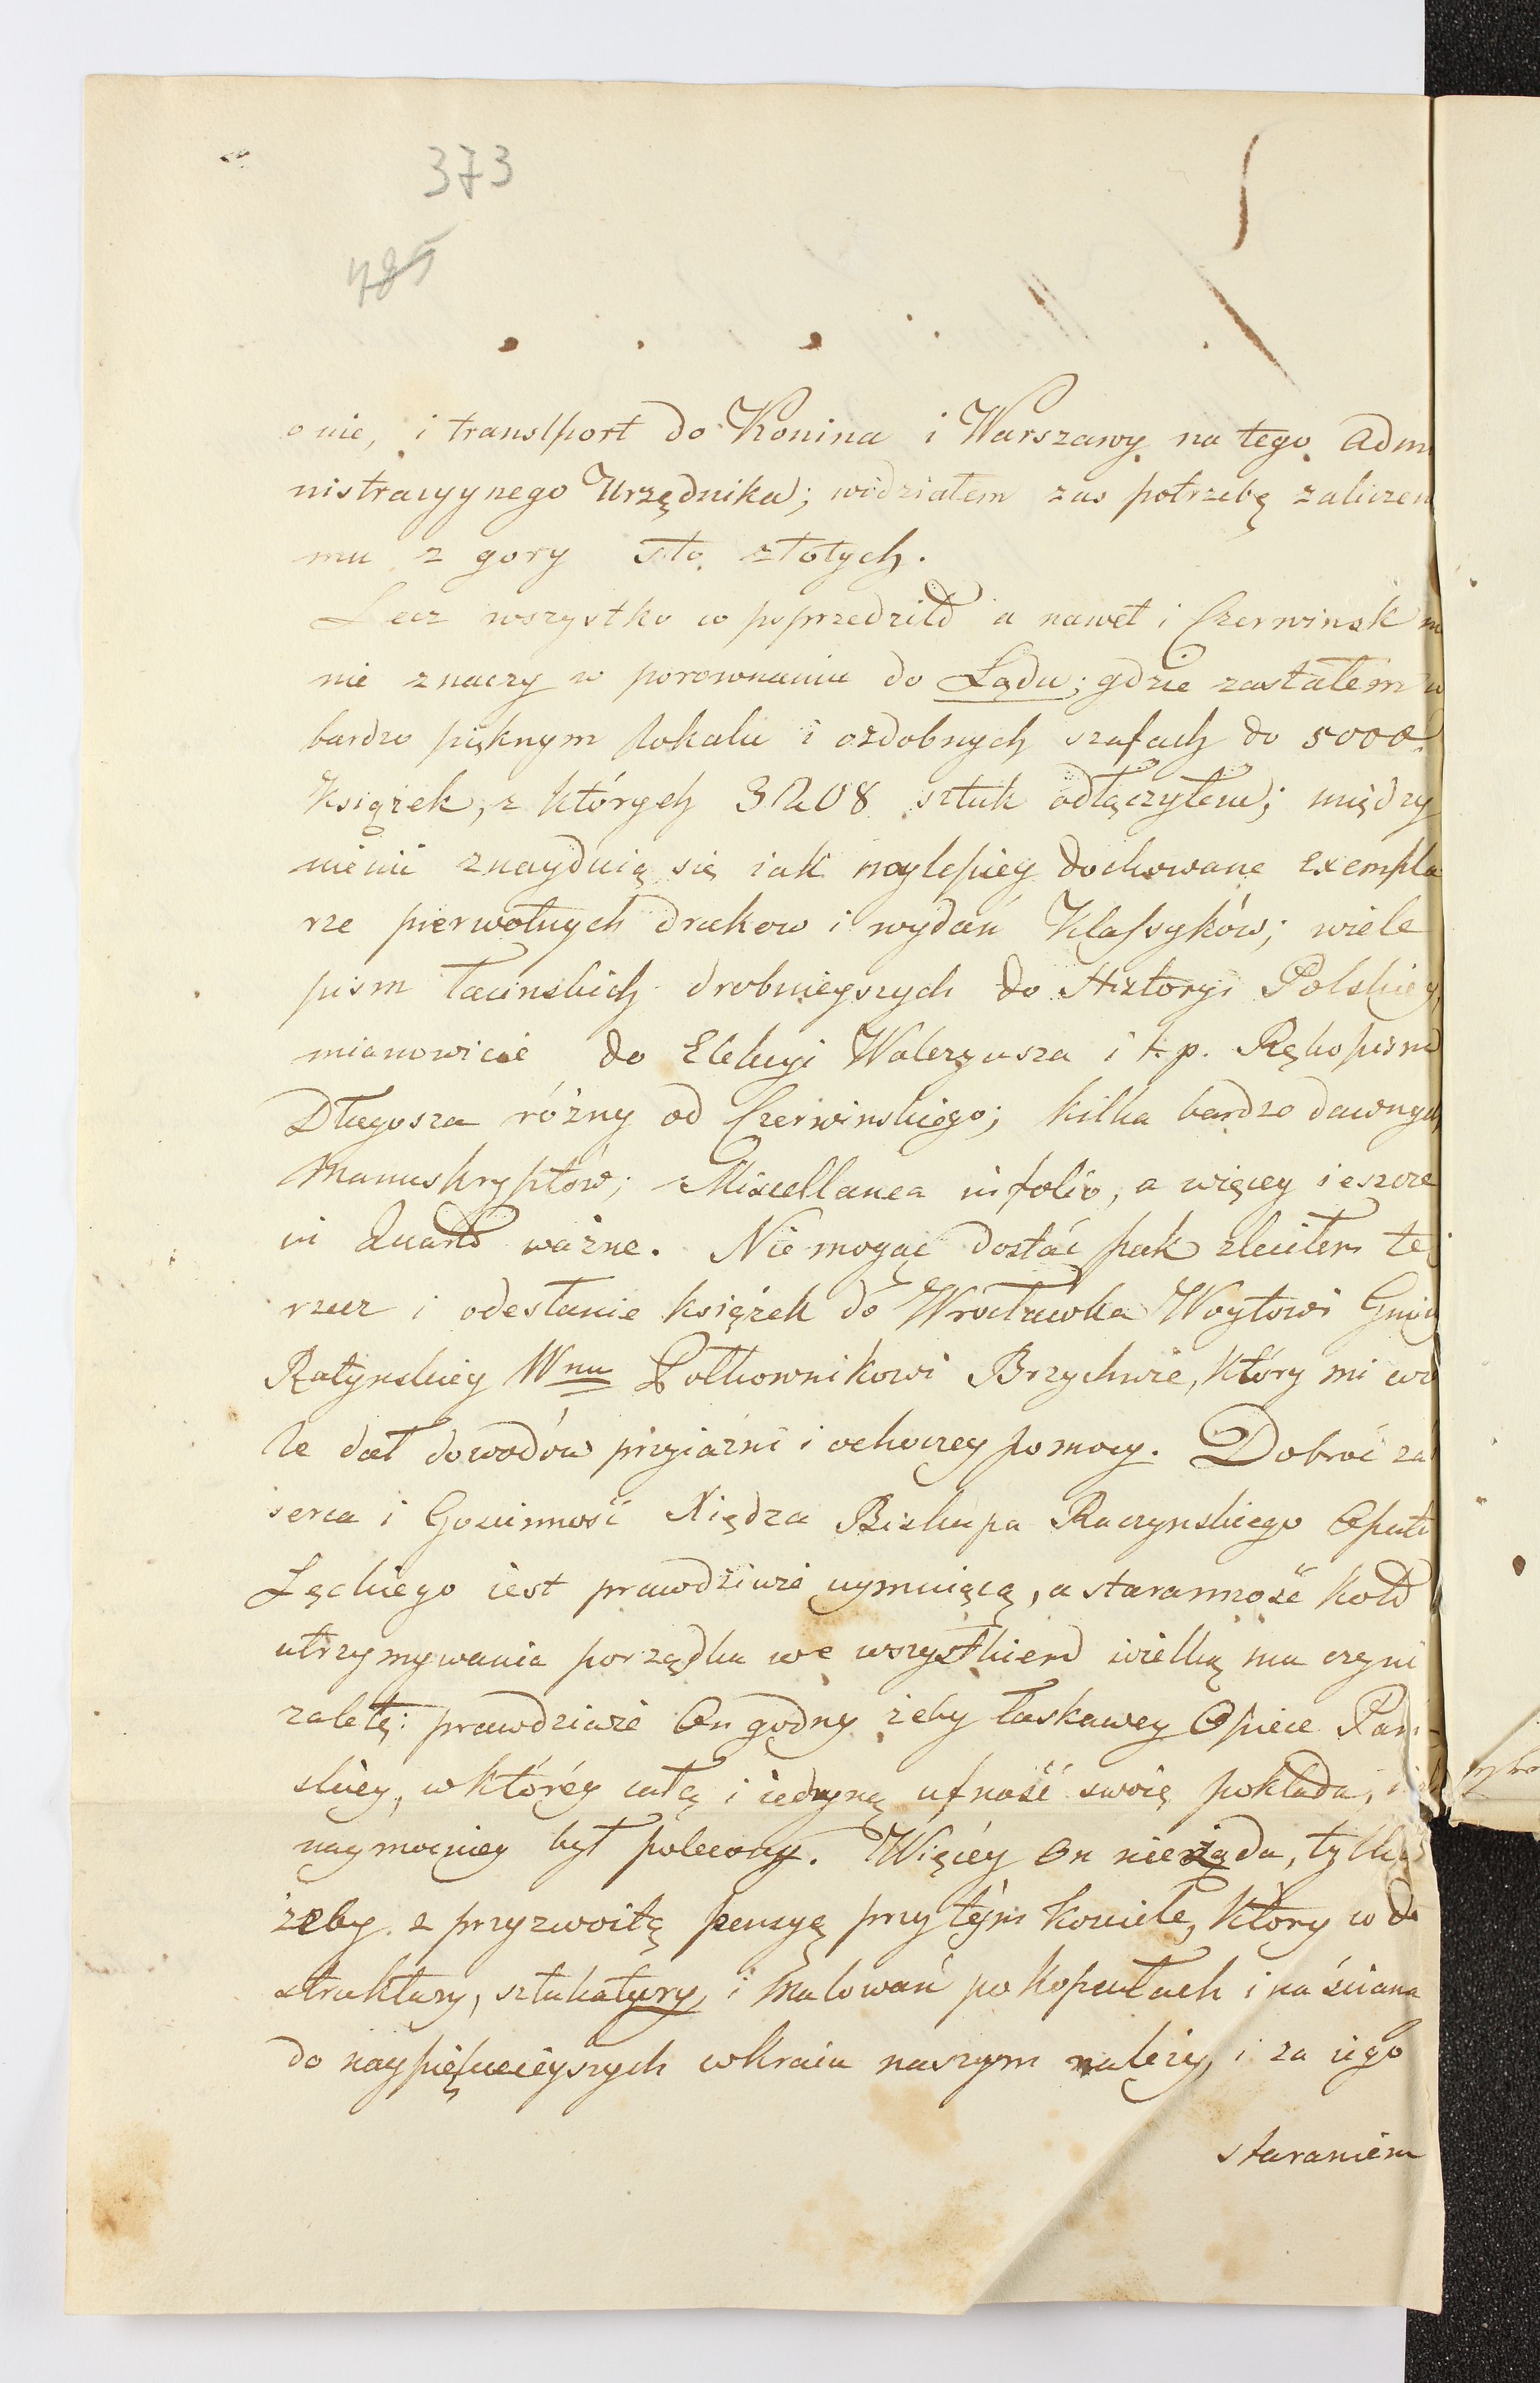 373
485
o nie, i transport do Konina i Warszawy na tego Admi
nistracyynego Urzędnika; widziałem zas potrzebę zaliczen
mu z gory sto złotych.
Lecz wszystko co poprzedziło a nawet i Czerwinsk
nie znaczy w porownaniu do Lądu; gdzie zastałem w
bardzo pięknym lokalu i ozdobnych szafach do 5000
Książek, z których 3208 sztuk odłączyłem; między
niemi znayduią się iak naylepiey dochowane exempla
rze pierwotnych drukow i wydań Klassyków; wiele
pism łacinskich drobnieyszych do Historyi Polskiey,
mianowicie do Elekcyi Walezyusza i t.p. Rękopism
Długosza różny od Czerwinskiego; kilka bardzo dawnych
Manuskryptów; Miscellanea in folio, a więcey ieszcze
in Quarto ważne. Nie mogąc dostać pak zleciłem tę
rzecz i odesłanie książek do Wrocławka Woytowi Gminy
Ratynskiey Wnu Połkownikowi Brzychwie, który mi wie
le dał dowodów przyiaźni i ochoczey pomocy. Dobroć zaś
serca i Gościnność Xiędza Biskupa Raczynskiego Opata
Lęckiego iest prawdziwie uymuiącą, a staranność koło
utrzymywania porządku we wszystkiem wielką mu czyni
zaletę: prawdziwie On godny żeby łaskawey Opiece Pań-
skiey, w któréy całą i iedyną ufność swoię pokłada,
naymocniey był polecony. Więcéy On nie żąda, tylko
żeby z przyzwoitą pensyą przy tém Kościele, który co do
struktury, sztukatury, i malowań po kopułach i na ściana
do naypięknieyszych w kraiu naszym należy, i za iego
staraniem